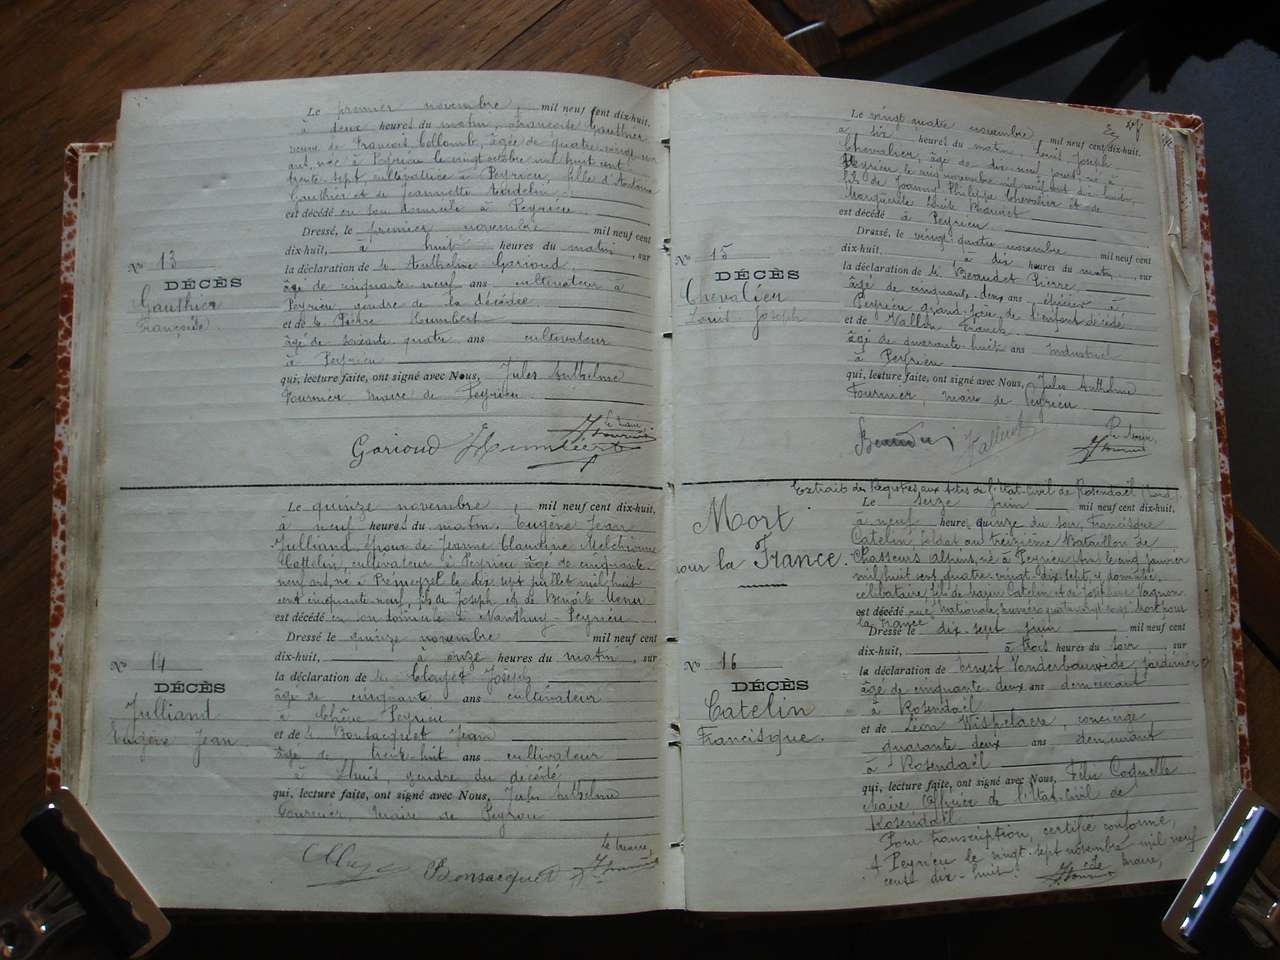 Le premier novembre, mil neuf cent dix-huit,
à deux heures du matin, Françoise Gauthier
veuve de François Collomb, âgée de quatre vingt un
ans, née à Peyrieu le vingt octobre mil huit cent
trente sept, cultivatrice à Peyrieu, fille d'Antoine
Gauthier et de Jeannette
est décédé en son domicile à Peyrieu.
Dressé, le premier novembre mil neuf cent
dix-huit, à huit heures du matin, sur
la déclaration de Anthelme Garioud
âgé de cinquante neuf ans cultivateur à
Peyrieu, gendre de la décédée
et de Pierre Humbert
âgé de soixante quatre ans cultivateur
à Peyrieu
qui, lecture faite, ont signé avec Nous, Jules Anthelme
Fournier maire de Peyrieu.
No 13
DÉCÈS
Gauthier
Françoise
Garioud Humbert Le maire,
Fournier
Le quinze novembre, mil neuf cent dix-huit,
à neuf heures du matin, Eugène Jean
Julliand, époux de Jeanne Claudine
cultivateur à Peyrieu âgé de cinquante
neuf ans, né à le dix sept juillet mil huit
cent cinquante-neuf, fils de Joseph et de Benoîte
est décédé en son domicile à Nanthuy-Peyrieu
Dressé le quinze novembre mil neuf cent
dix-huit, à onze heures du matin, sur
la déclaration de Joseph
âgé de cinquante ans cultivateur
à Peyrieu
et de Bonsacquet Jean
âgé de trente-huit ans cultivateur
à Lhuis, gendre du décédé
qui, lecture faite, ont signé avec Nous, Jules Anthelme
Fournier, Maire de Peyrieu
No 14
DÉCÈS
Julliand
Eugène Jean
Bonsacquet Le maire,
Fournier
Le vingt quatre novembre mil neuf cent dix-huit,
à six heures du matin, Louis Joseph
Chevalier, âgé de dix-neuf jours né à
Peyrieu le novembre mil neuf cent dix huit,
fils de Joanny Philippe Chevalier et de
Marguerite
est décédé à Peyrieu
Dressé, le vingt quatre novembre mil neuf cent
dix-huit, à dix heures du matin, sur
la déclaration de Beaudet Pierre
âgé de cinquante deux ans, épicier à
Peyrieu grand-père de l'enfant décédé
et de Vallod Franck
âgé de quarante-huit ans industriel
à Peyrieu
qui, lecture faite, ont signé avec Nous, Jules Anthelme
Fournier, maire de Peyrieu
No 15
DÉCÈS
Chevalier
Louis Joseph
Le Maire,
Fournier
Extrait des Registres aux Actes de l'Etat-Civil de Rosendaël (Nord)
Mort
pour la France.
Le seize juin mil neuf cent dix-huit,
à neuf heures quinze du soir, Francisque
Catelin soldat au treizième Bataillon de
Chasseurs alpins, né à Peyrieu Ain le janvier
mil huit cent quatre-vingt-dix sept, y domicilié,
célibataire, fils de Catelin et de Joséphine
est décédé rue Nationale, numéro quatre-vingt mort pour
la France
Dressé le dix sept juin mil neuf cent
dix-huit, à trois heures du soir, sur
la déclaration de Ernest Vanderbauwede, jardinier
âgé de cinquante deux ans demeurant
à Rosendaël
et de Léon Wispelaere, concierge,
quarante deux ans demeurant
à Rosendaël
qui, lecture faite, ont signé avec Nous, Félix Coquelle
Maire Officier de l'Etat-Civil de
Rosendaël
Pour transcription, certifié conforme,
A Peyrieu le vingt-sept novembre mil neuf
cent dix-huit. Le maire,
Fournier
No 16
DÉCÈS
Catelin
Francisque.